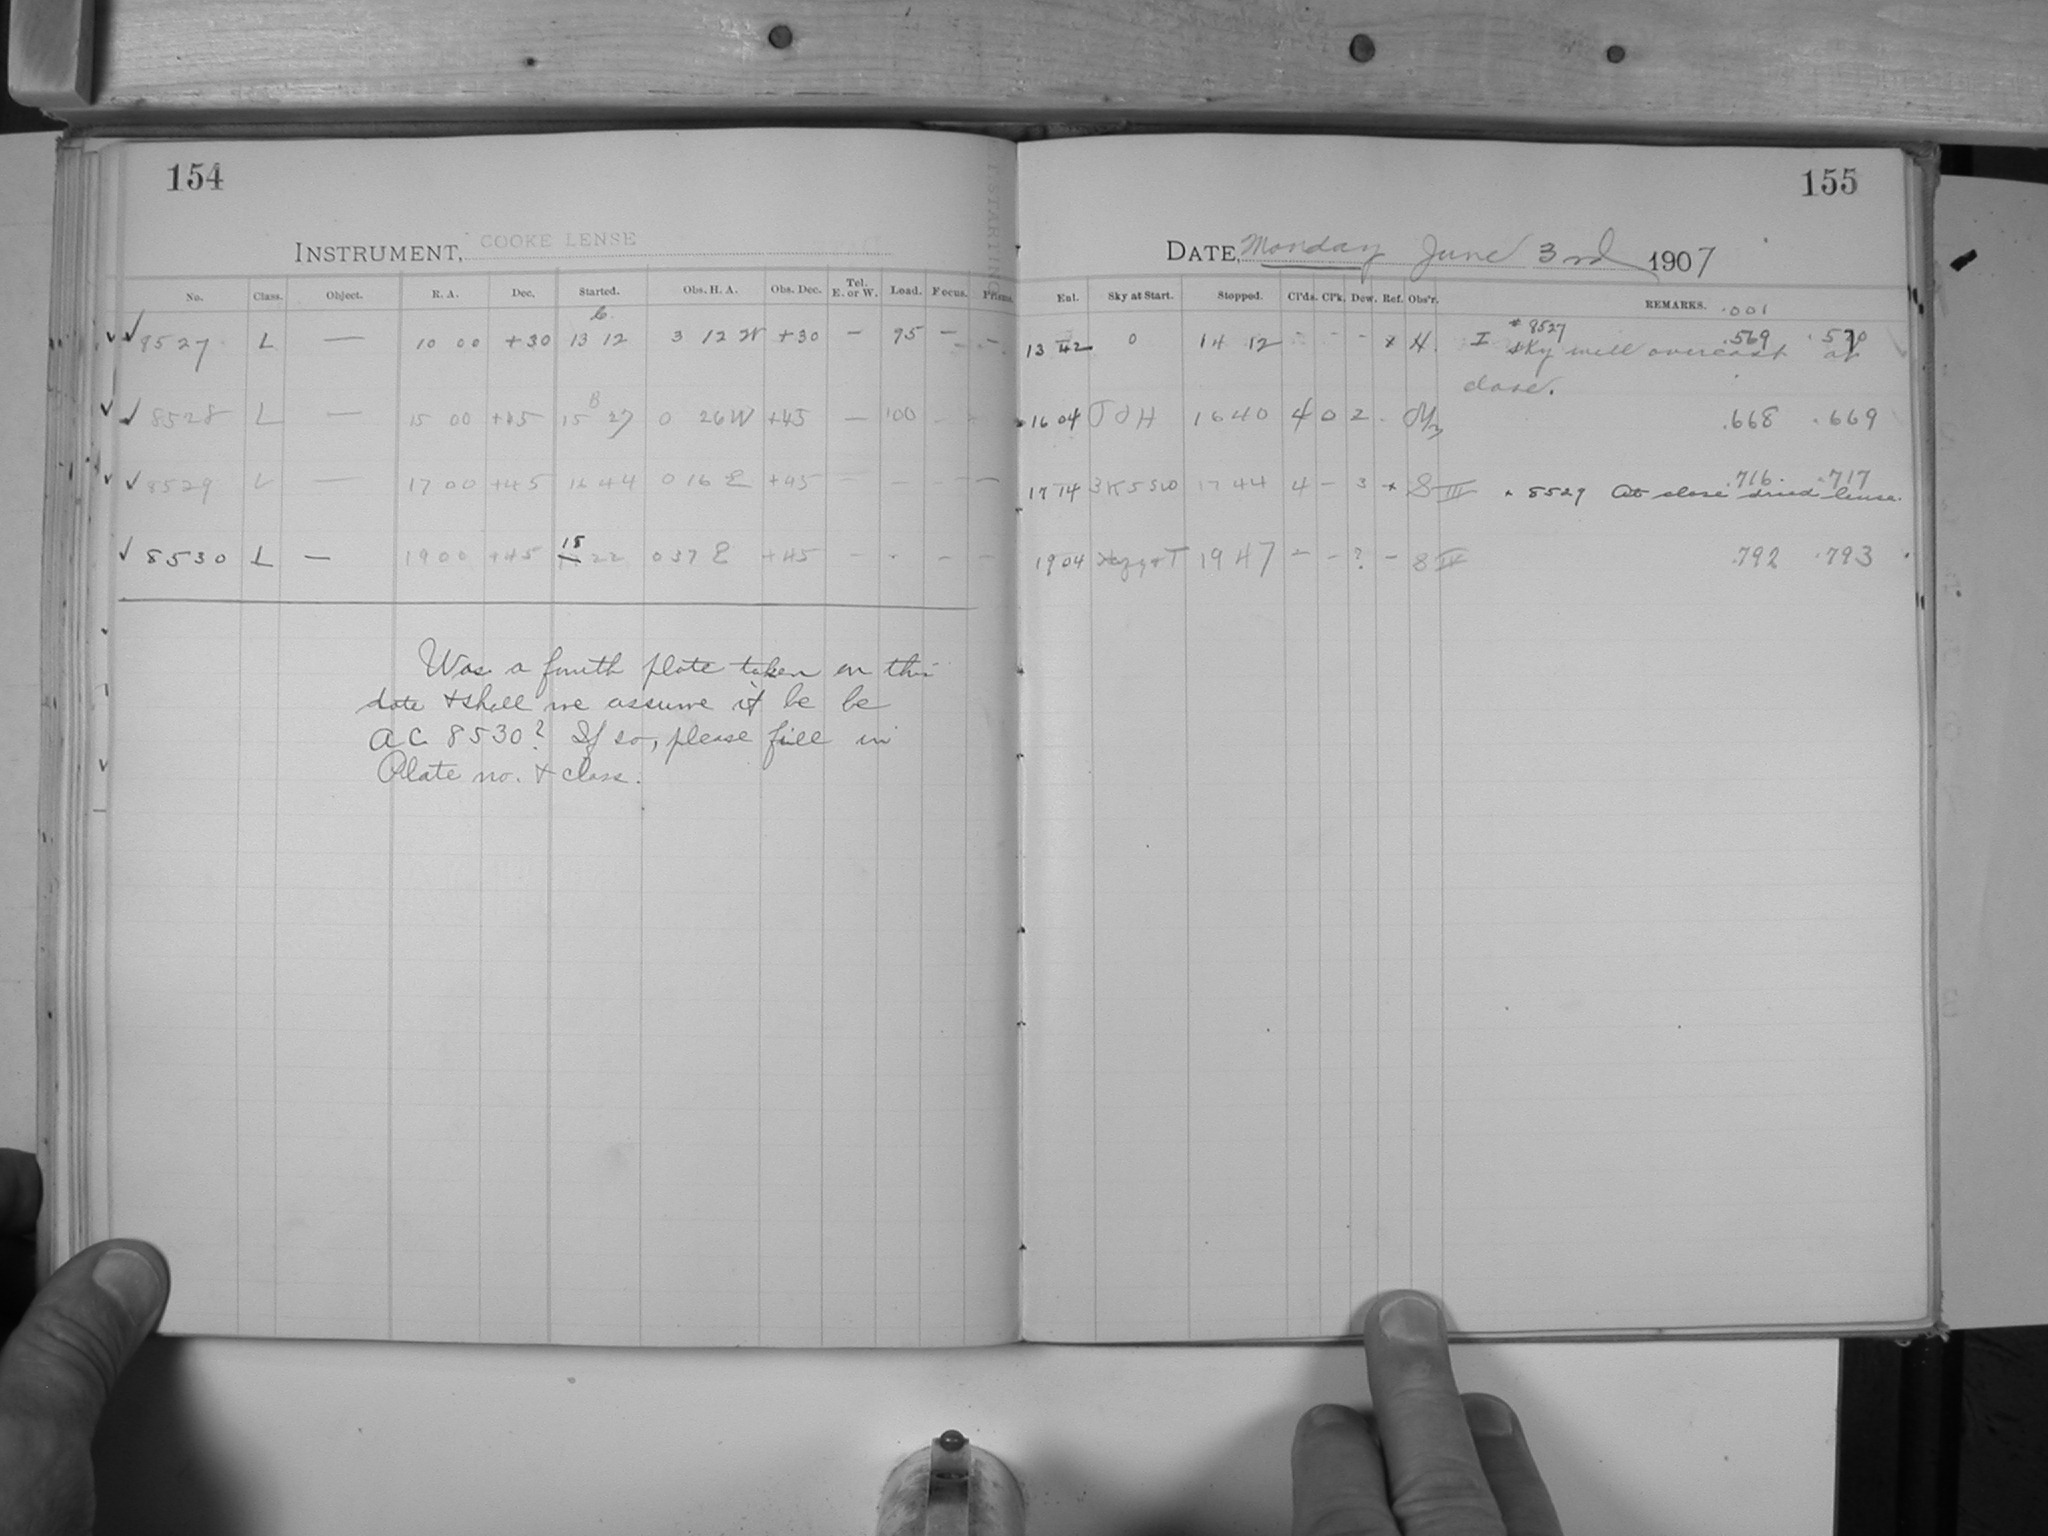 154
INSTRUMENT, COOKE LENSE
No. Class. Object. R. A. Dec. Started. Obs. H. A. Obs. Dec. Tel. E. or W. Load. Focus. Prisms.
8527 L — 10 00 +30 13 12 3 12 W +30 — 95 — —
8528 L — 15 00 +45 15 27 0 26 W +45 — 100 — —
8529 L — 17 00 +45 16 44 0 16 E +45 — — — — —
8530 L — 19 00 +45 18 22 0 37 E +45 — - — —
Was a fourth plate taken on this
date + shall we assume it be be
AC 8530? If so, please fill in
Plate no. + class.
155
DATE, Monday June 3rd 1907
Eal. Sky at Start. Stopped. Cl'ds. Cl'k. Dew. Ref. Obs'r. REMARKS. .001
13 42 0 14 12 - - - x H. I # 8527 .569 .570
sky well overcast at
close.
16 04 1640 4 0 2 - .668 .669
17 14 17 44 4 - 3 x S III .716 .717
x 8529 At close dried lense.
19 04 19 47 — - ? - S IV .792 .793